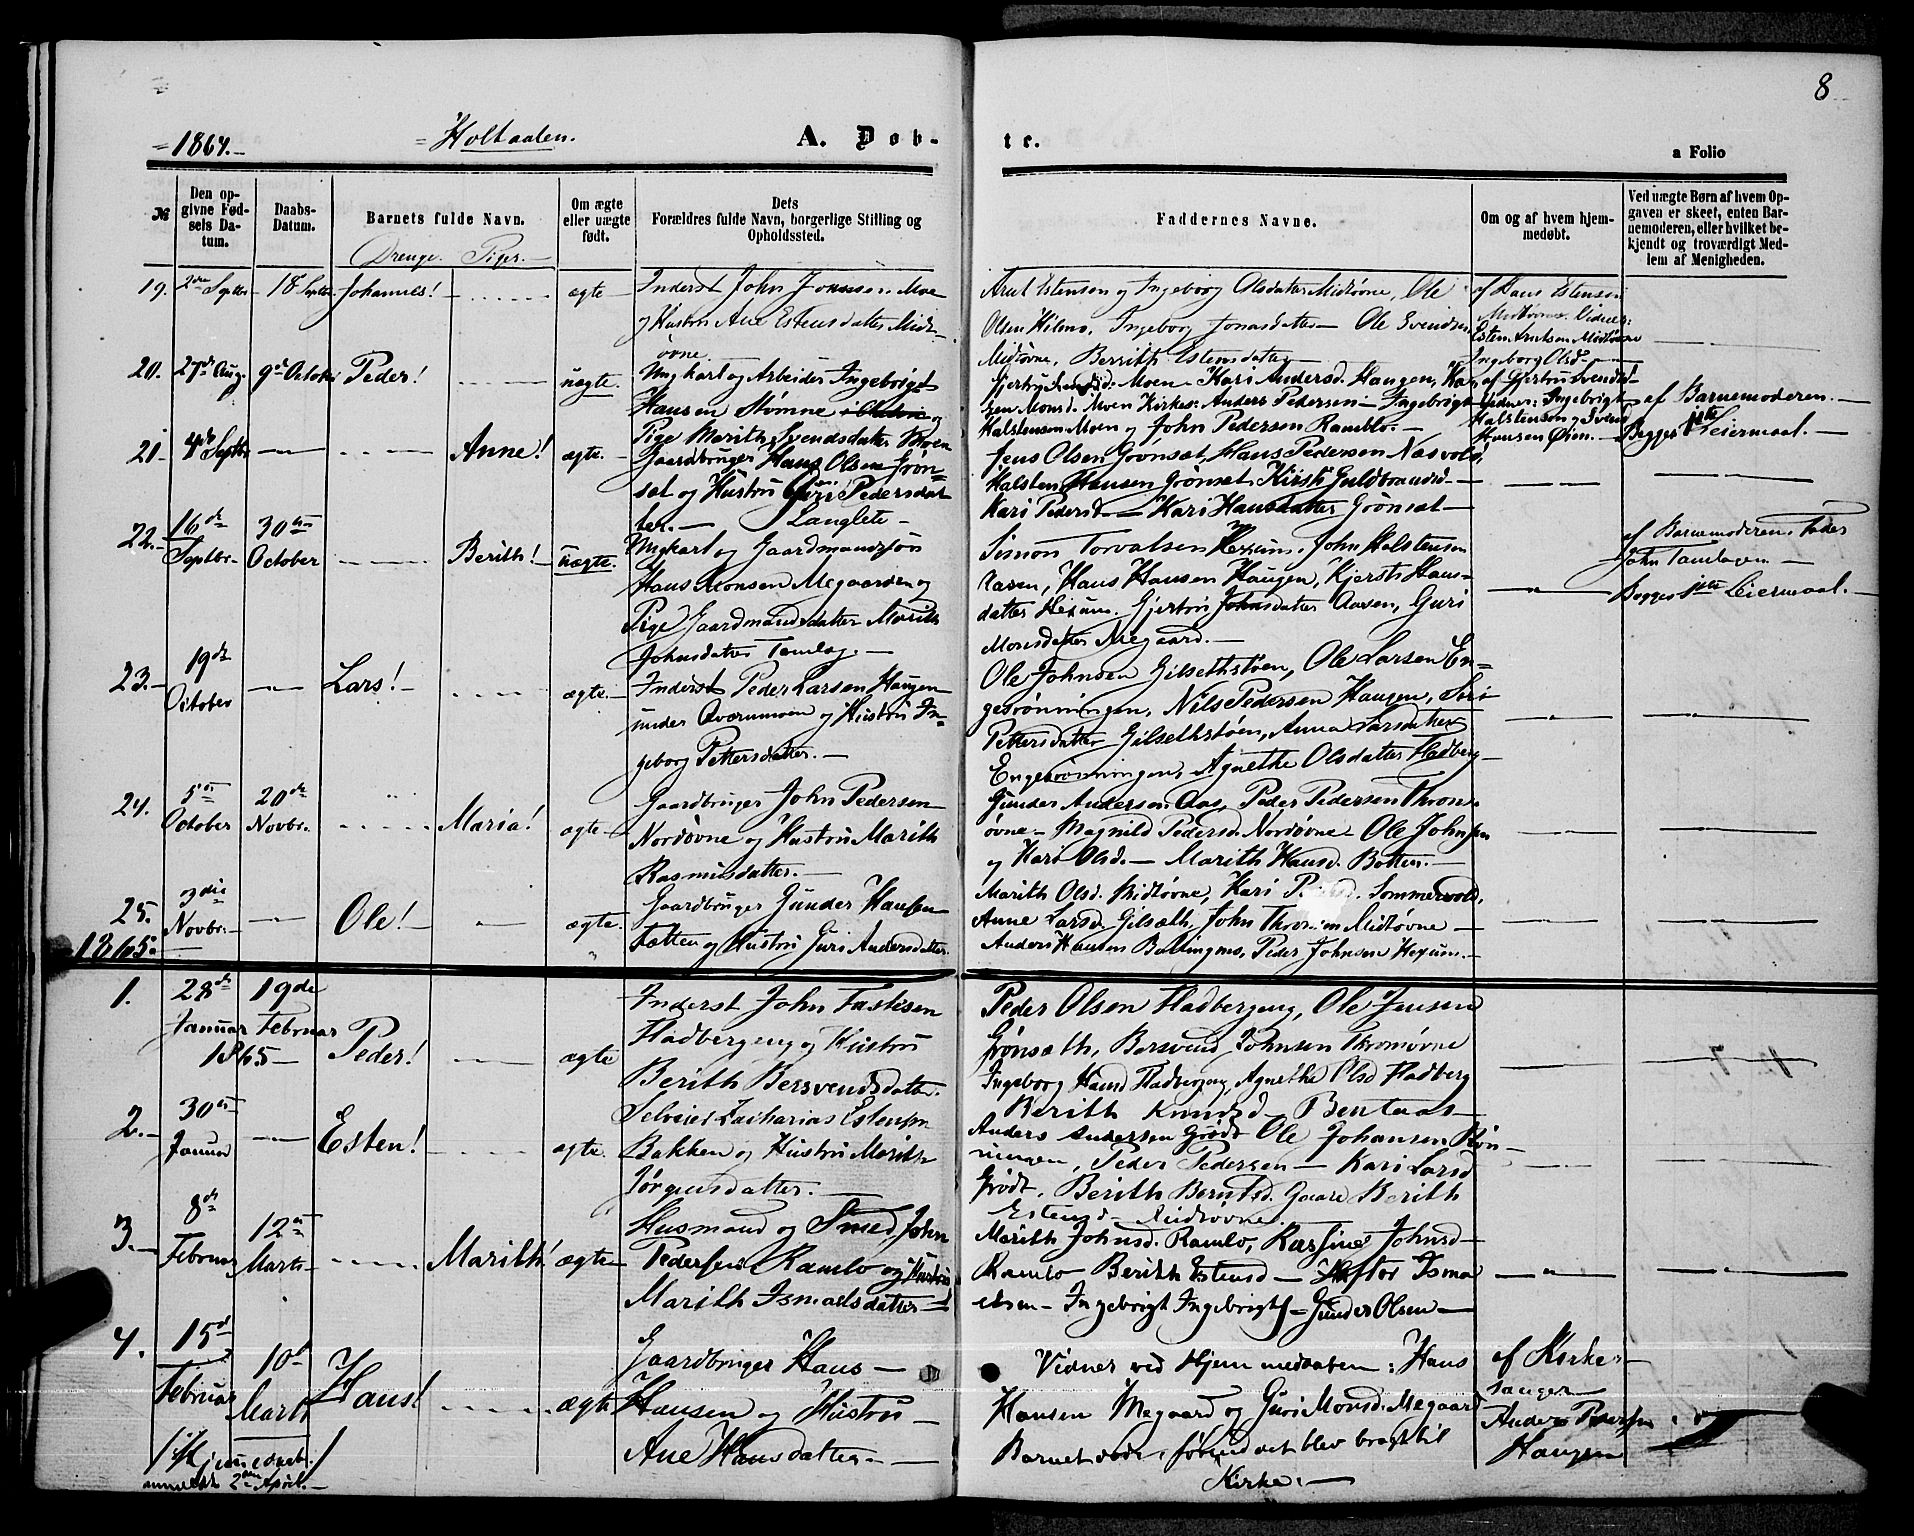 8
1864.
Holtaalen.
A. Døb-
te.
a Folio
№
Den op-
givne Fød-
sels Da-
tum.
Daabs-
Datum.
Barnets fulde Navn.
Drenge. Piger.
Om ægte
eller uægte
født.
Dets
Forældres fulde Navn, borgerlige Stilling og
Opholdssted.
Faddernes Navne.
Om og af hvem hjem-
medøbt.
Ved uægte Børn af hvem Op-
gaven er skeet, enten Bar-
nemoderen, eller hvilket be-
kjendt og troværdigt Med-
lem af Menigheden.
19. 2den Septbr. 18 Septbr. Johannes! ægte
Inderst John Jonssen Moe
og Hustru Ane Estensdatter Midt-
øvne.
Arnt Estensen og Ingeborg Olsdatter Midtøvne, Ole
Olsen Hilmo, Ingeborg Jonasdatter Ole Svendsen
Midtøvne, Berrith Estensdatter
af Hans Estensen
Midtøvne. Vidner:
Esten Arntsen Midtøvne
Ingeborg Olsd.
20. 27de Aug. 9de October Peder! uægte.
Ungkarl og Arbeider Ingebrigt
Hansen Stømne og
Pige Marith Svendsdatter Moen
Moen Kari Andersd. Haugen,
Monsd. Moen Kirkes: Anders Pedersen Ingebrigt
Halstensen Moen og John Pedersen Ramlo.
af Gjertru Svendsd
Vidner: Ingebrigt
Halstensen og Svend
Hansen Øien.
af Barnemoderen.
Begges 1ste Leiermaal.
21. 4de Septbr. Anne! ægte.
Gaardbruger Hans Olsen Grøn-
set og Hustru Guri Pedersdat-
ter. Langlete
Jens Olsen Grønset, Hans Pedersen Næsvold,
Halsten Hansen Grønset Kirsti Guldbrandsd.
Kari Pedersd. Kari Hansdatter Grønset
22. 16de Septbr. 30te October Berith! Uægte.
Ungkarl og Gaardmandssøn
Hans Monsen Megaarden og
Pige Gaardmandsdatter Marith
Johnsdatter Tamlag.
Simon Torvalsen Hexum, John Halstensen
Aasen, Hans Hansen Haugen, Kjersti Hans-
datter Hexum, Gjertru Johnsdatter Aasen, Guri
Monsdatter Megaard.
af Barnemoderens Fader
John Tamlagen
Begges 1ste Leiermaal.
23. 19de October Lars! ægte.
Inderst Peder Larsen Haugen
under Qværnmoen og Hustru In-
geborg Pettersdatter.
Ole Johnsen Gilsethstøen, Ole Larsen En-
gesrønningen, Nils Pedersen Haugen, Siri
Pettersdatter Gilsethstøen, Anna Larsdatter
Engesrønningen, Agnethe Olsdatter Hadberg
24. 5te October 20de Novbr. Maria! ægte
Gaardbruger John Pedersen
Nordøvne og Hustru Marith
Rasmusdatter.
Gunder Andersen Aas, Peder Pedersen Thron-
øvne Magnild Pedersd. Nordøvne Ole Johnsen
og Kari Olsd. Marith Hansd. Botten.
25. 3die Novbr. Ole! ægte.
Gaardbruger Gunder Hansen
Tætten og Hustru Guri Andersdatter
Marith Olsd. Midtøvne, Kari Sommervold,
Anne Larsd Gilsæth, John Midtøvne
Anders Hansen Peder Johnsen Hexum.
1865:
1. 28de Januar 1865 19de Februar Peder! ægte
Inderst John Tastesen
Hadbergeng og Hustru
Berith Bersvendsdatter.
Peder Olsen Hadbergeng, Ole Jensen
Grønsæth, Bersvend Johnsen Thronøvne
Ingeborg Hansd Hadbergeng, Agnethe Olsd Hadberg
Berith Knudsd Bentaas
2. 30te Januar Esten! ægte.
Selveier Zacharias Estensen
Bakken og Hustru Marith
Jørgensdatter.
Anders Andersen Grødt Ole Johansen Røn-
ningen, Peder Pedersen Kari Larsd
Grødt, Berith Berntsd. Gaare Berith
Estensd Midtøvne.
3. 8de Februar 12te Marts Marith! ægte
Husmand og Smed John
Pedersen Ramlo og Hustru
Marith Ismaelsdatter
Marith Johnsd. Ramlo, Johnsd
Ramlo Berith Estensd Isma
elsen Ingebrigt Ingebrigts Gunder Olsen
4. 15de Februar 10de Marts Hans! ægte
Gaardbruger Hans
Hansen og Hustru
Ane Hansdatter.
Vidner ved Hjemmedaaben: Hans
Hansen Megaard og Guri Monsd. Megaard
Barnet døde, førend det blev bragt til
Kirke.
af Kirke-
sanger
Anders Pedersen
Haugen
Hjemmedøbt.
anmeldt 2den April.